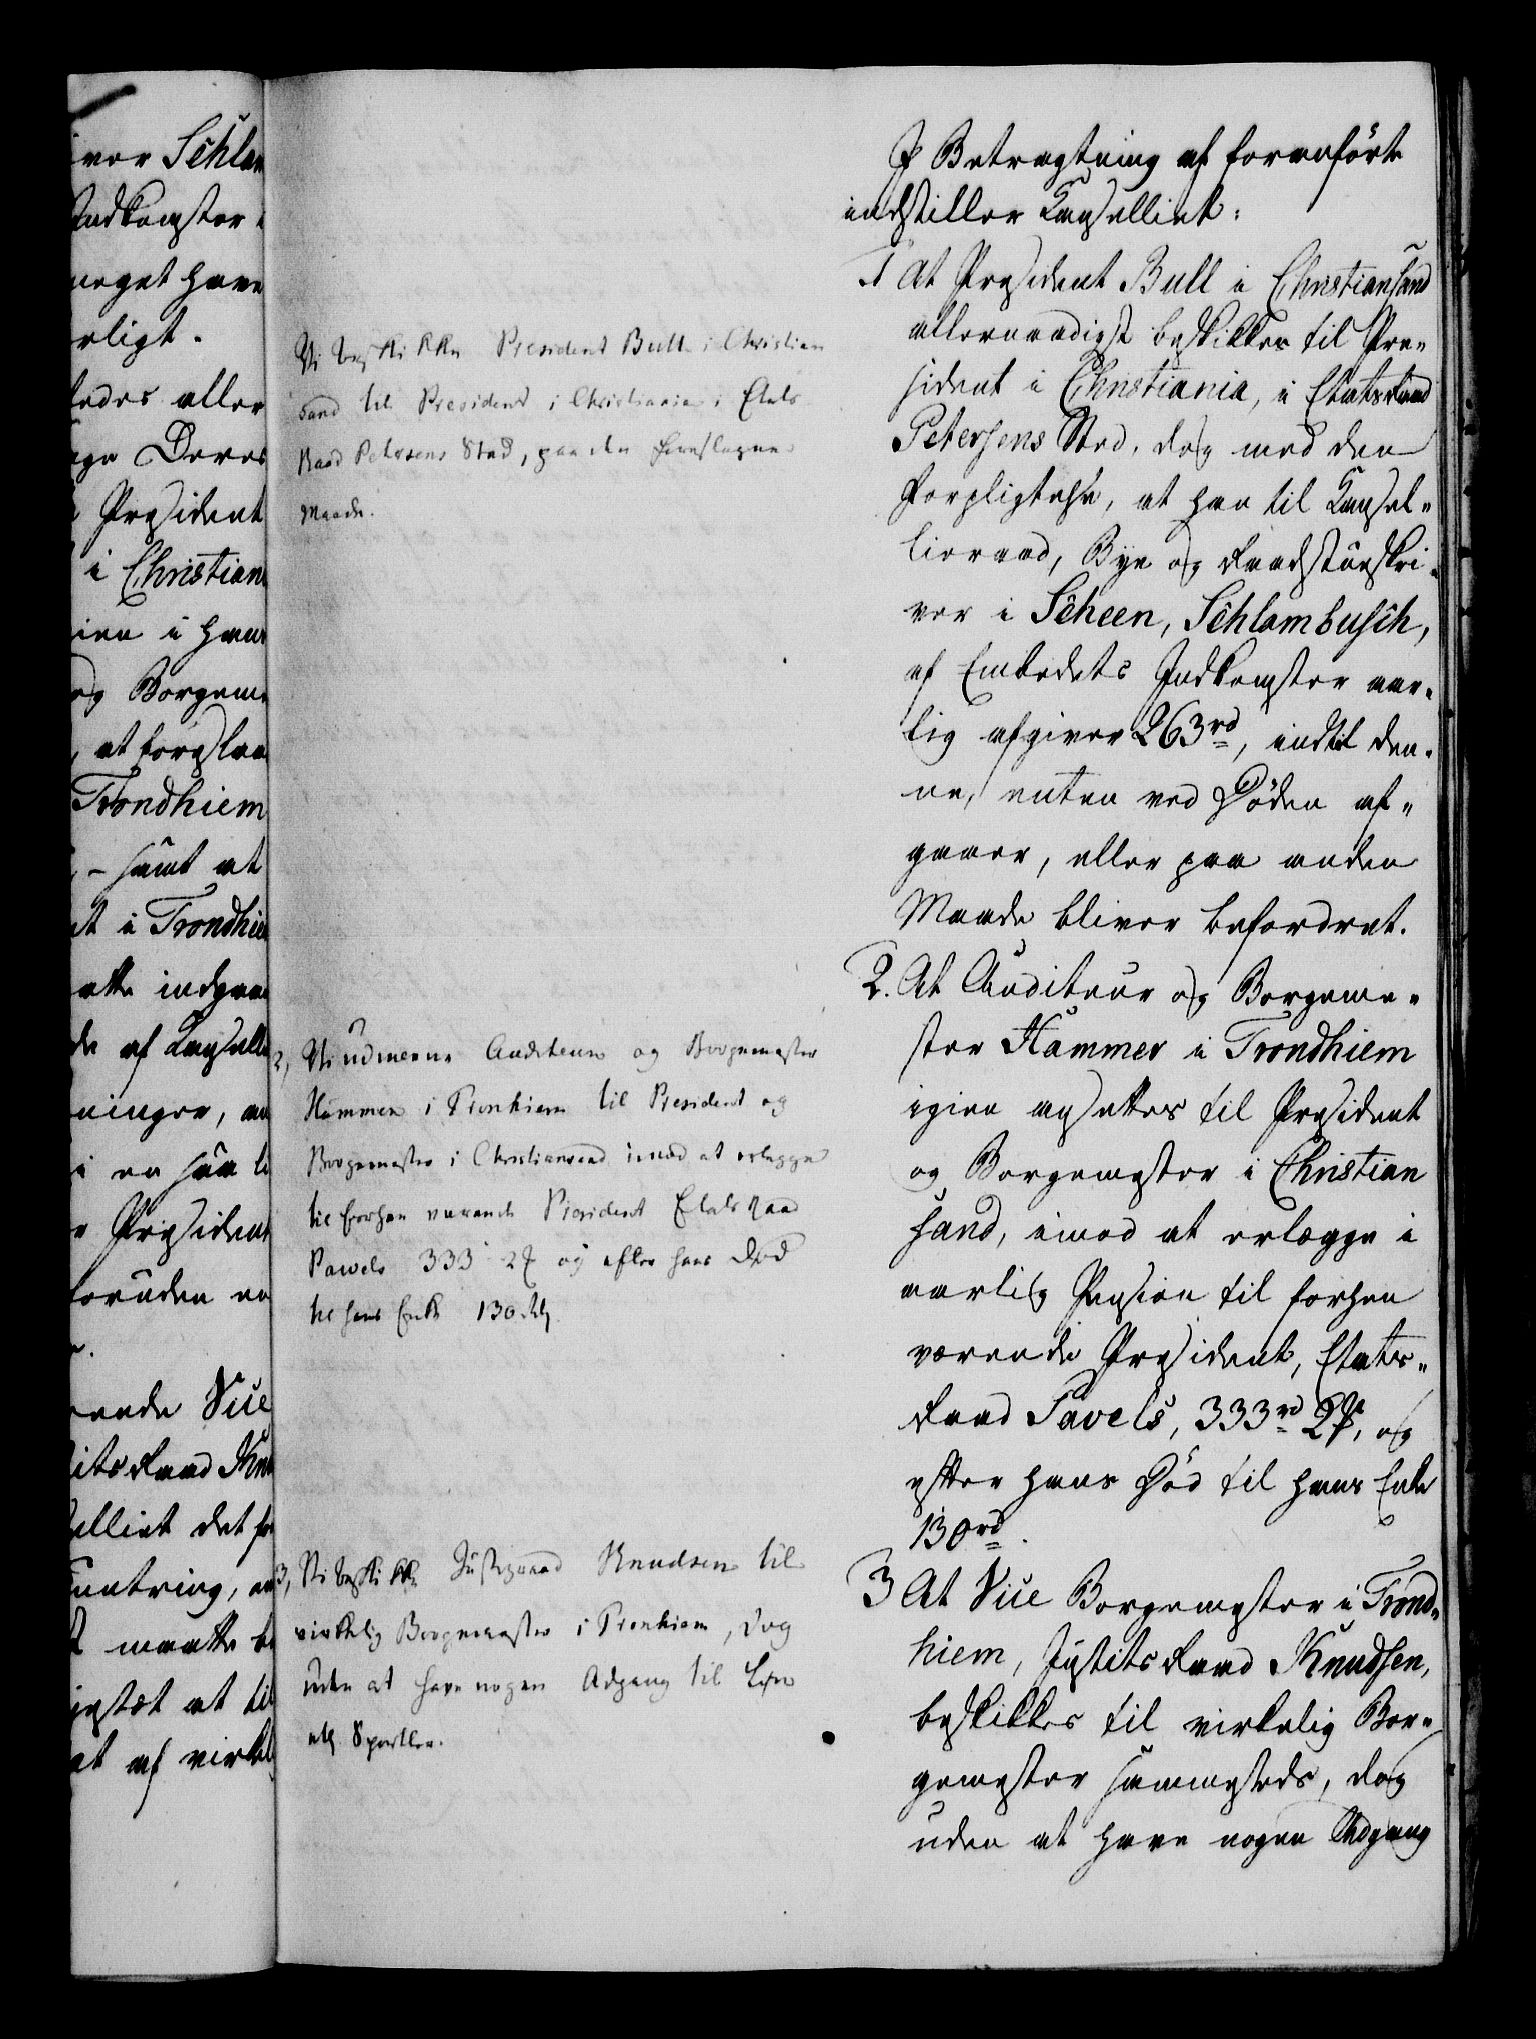 ver Schlam
Indkomster
meget have
erligt.
ledes aller
age Deres
Præsident
i Christian
ien i hans
og Borgeme
, at foreslaae
Trondhiem
, – samt at
et i Trondhie
atte indgaae
de af Cancelli
ninger, an
i en saa li
r Præsident
foruden en
rende Vice
its Raad Knu
elliet det for
untring, at
maatte be
at til
at af virkel
Vi beskikke President Bull i Christian
sand til President i Christiania i Etats
Raad Petersens Sted, paa den foreslagne
Maade.
2, Vi udnevne Auditeur og Borgemester
Hammer i Tronhiem til President og
Borgemester i Christiansand imod at erlegge
til forhen værende President Etats Raad
Pawels 333 rd 2 ꝟ og efter hans Død
til hans Enke 130 rdlr.
3, Vi beskikke Justizraad Knudsen til
virkelig Borgemester i Tronhiem, dog
uden at have nogen Adgang til Løn
ell. Sportler.
I Betragtning af foranførte
indstiller Cancelliet:
1 At Præsident Bull i Christiansand
allernaadigst beskikkes til Præ-
sident i Christiania, i Etatsraad
Petersens Sted, dog med den
Forpligtelse, at han til Cancel-
lieraad, Bye og Raadstueskri-
ver i Scheen, Schlambusch,
af Embedets Indkomster aar-
lig afgiver 263 rd, indtil den-
ne, enten ved Døden af-
gaaer, eller paa anden
Maade bliver befordret.
2. At Auditeur og Borgeme-
ster Hammer i Trondhiem
igien ansættes til Præsident
og Borgemester i Christian
sand, imod at erlægge i
aarlig Pension til forhen
værende Præsident, Etats-
Raad Pavels, 333 rd 2 ꝟ, og
efter hans Død til hans Enke
130 rd.
3 At Vice Borgemester i Trond-
hiem, Justits Raad Knudsen,
beskikkes til virkelig Bor-
gemester sammesteds, dog
uden at have nogen Adgang